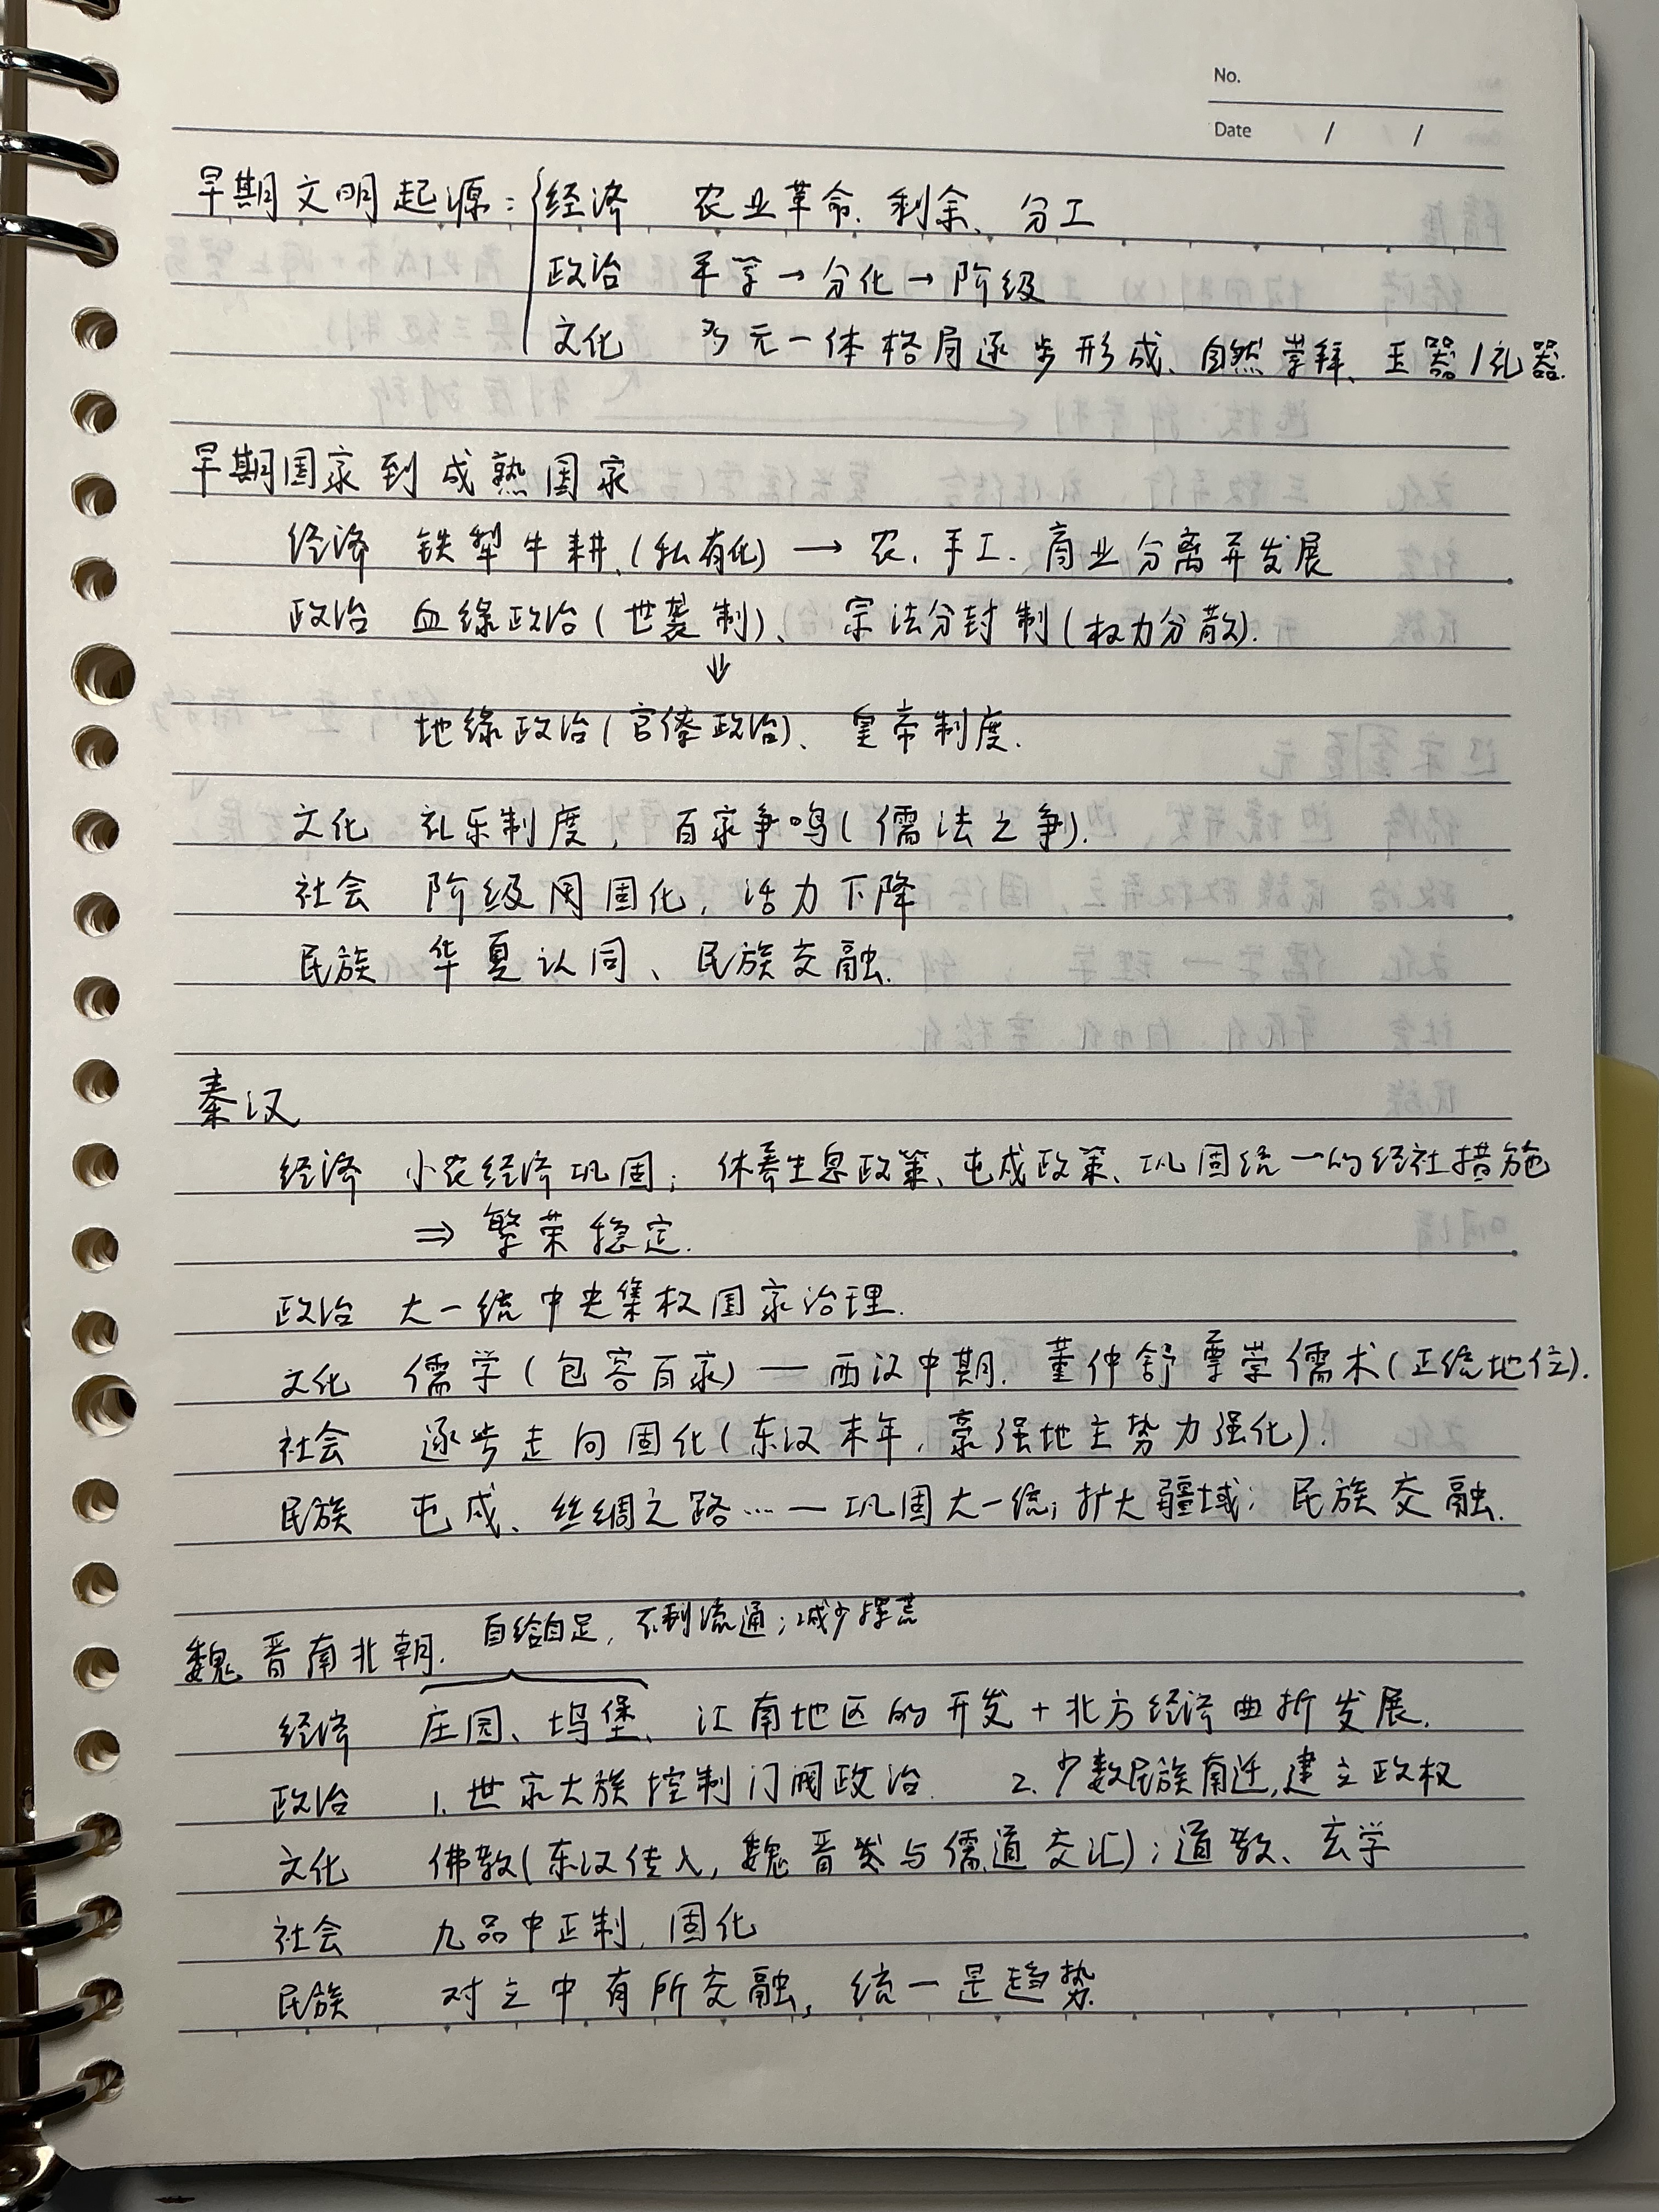 No.
Date / /
早期文明起源：经济 农业革命、剩余、分工
政治 平等→分化→阶级
文化 多元一体格局逐步形成、自然崇拜、玉器/礼器.
早期国家到成熟国家
经济 铁犁牛耕、(私有化) → 农、手工、商业分离并发展
政治 血缘政治(世袭制)、宗法分封制(权力分散).
↓
地缘政治(官僚政治)、皇帝制度.
文化 礼乐制度，百家争鸣(儒法之争).
社会 阶级固化，活力下降
民族 华夏认同、民族交融.
秦汉
经济 小农经济巩固；休养生息政策、屯戍政策、巩固统一的经社措施
⇒ 繁荣稳定.
政治 大一统中央集权国家治理.
文化 儒学(包容百家) — 西汉中期. 董仲舒 尊崇儒术(正统地位).
社会 逐步走向固化(东汉末年，豪强地主势力强化).
民族 屯戍、丝绸之路… — 巩固大一统；扩大疆域；民族交融.
魏晋南北朝. 自给自足，不利流通；减少抛荒
经济 庄园、坞堡、江南地区的开发 + 北方经济曲折发展.
政治 1. 世家大族控制门阀政治. 2. 少数民族南迁，建立政权
文化 佛教(东汉传入，魏晋与儒道交汇)；道教、玄学
社会 九品中正制，固化
民族 对立中有所交融，统一是趋势.